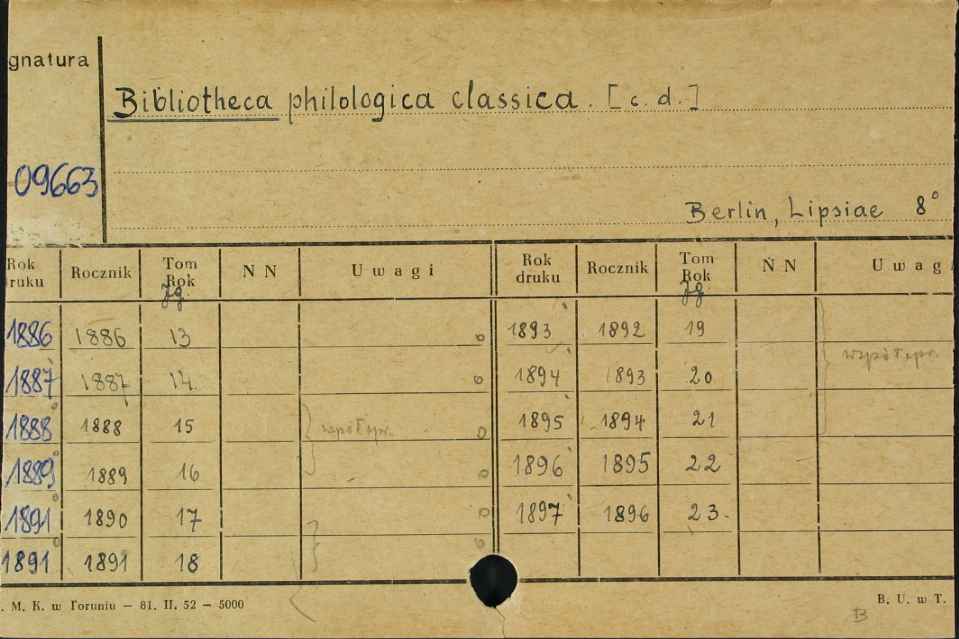 gnatura
Bibliotheca philologica classica. [c. d.]
09663
Berlin, Lipsiae 8°
Rok druku Rocznik Tom Rok Jg. N N Uwagi Rok druku Rocznik Tom Rok Jg. N N Uwagi
1886 1886 13 1893 1892 19
współopr.
1887 1887 14. 1894 1893 20
1888 1888 15 współopr. 1895 1894 21
1889 1889 16 1896 1895 22
1891 1890 17 1897 1896 23.
1891 1891 18
. M. K. w Toruniu — 81. II. 52 — 5000
B. U. w T.
B